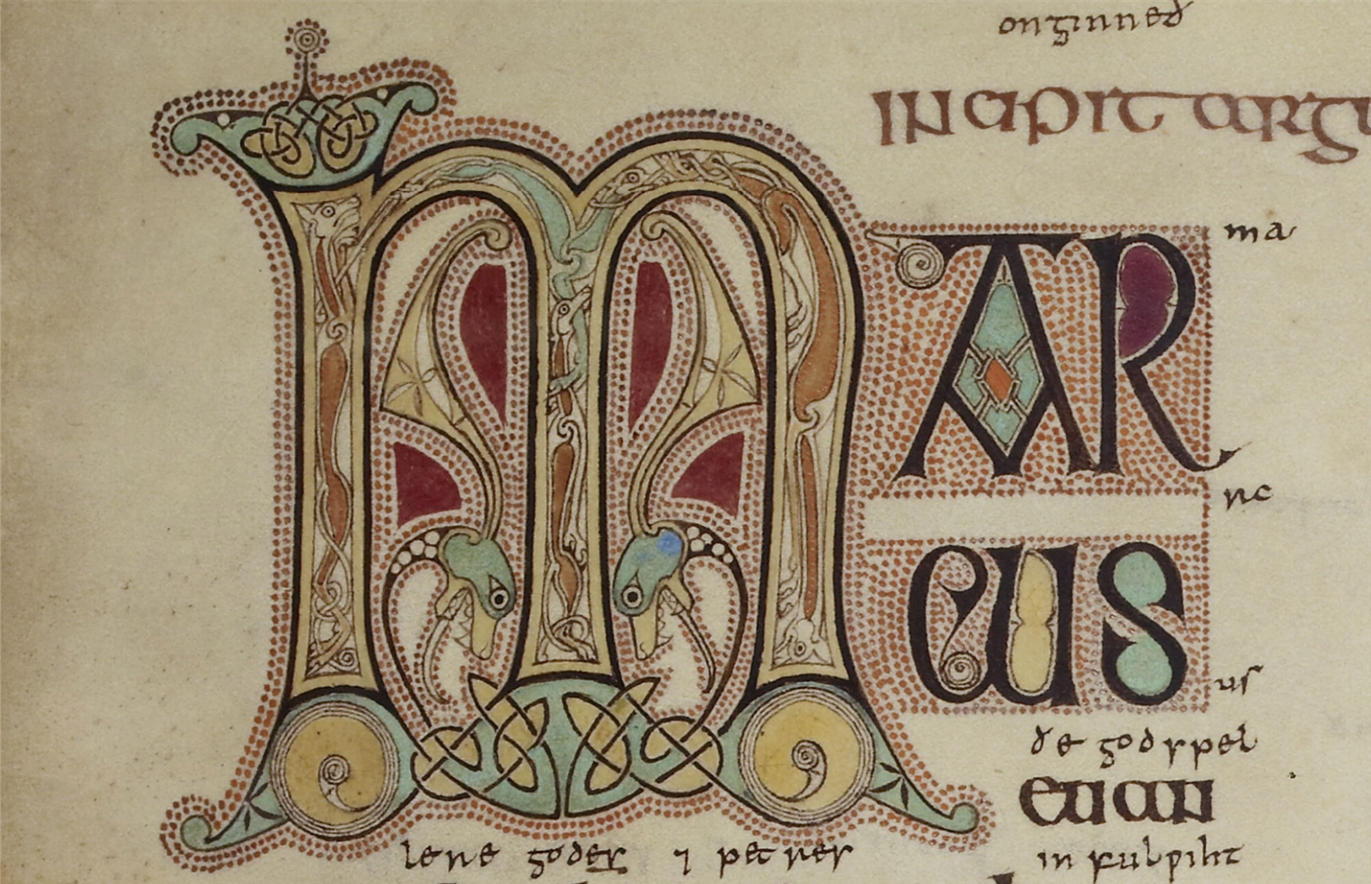 onginneð
INCIPIT ARGU
MAR
ma
rc
CUS
us
ðe godspel
EUAN
lere godes ⁊ petres
in fulƿiht